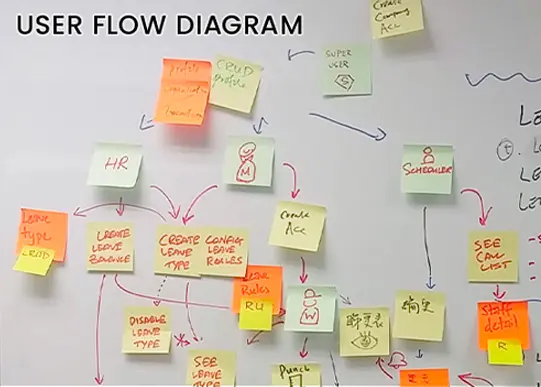 USER FLOW DIAGRAM
Create
Company
Acc
SUPER
USER
S
profile
CRUD
profile
HR
M
SCHEDULER
Leave
type
CRUD
CREATE
LEAVE
BALANCE
CREATE
LEAVE
TYPE
CONFIG
LEAVE
RULES
Create
Acc
SEE
CAL
LIST
Leave
Rules
RU
CP
W
聊更表
編更
Staff
detail
R
DISABLE
LEAVE
TYPE
SEE
LEAVE
TYPE
Punch